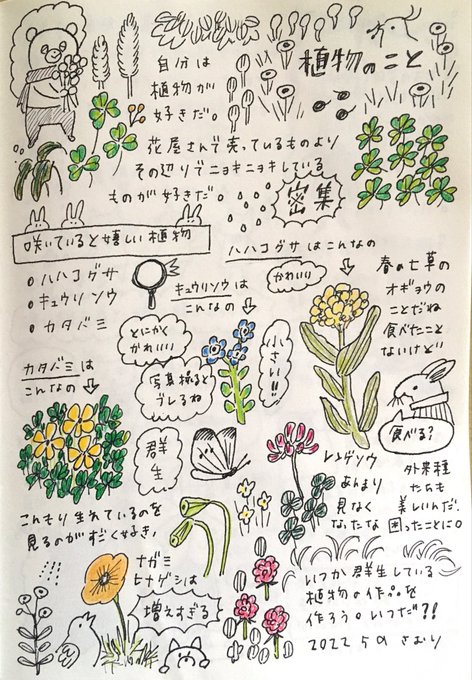 植物のこと
自分は
植物が
好きだ。
花屋さんで売っているものより
その辺りでニョキニョキしている
ものが好きだ。
密集
咲いていると嬉しい植物
ハハコグサ
キュウリソウ
カタバミ
キュウリソウは
こんなの
とにかく
かわいい
写真撮ると
ブレるね
小さい!!
ハハコグサはこんなの
かわいい
春の七草の
オギョウの
ことだね
食べたこと
ないけど
食べる?
カタバミは
こんなの
群生
こんもり生れているのを
見るのがすごく好き。
レンゲソウ
あんまり
見なく
なったな
外来種
たちも
美しいんだ。
困ったことに。
ナガミ
ヒナゲシは
増えすぎる
いつか群生している
植物の作品を
作ろう。いつだ?!
2022 5月 さむり